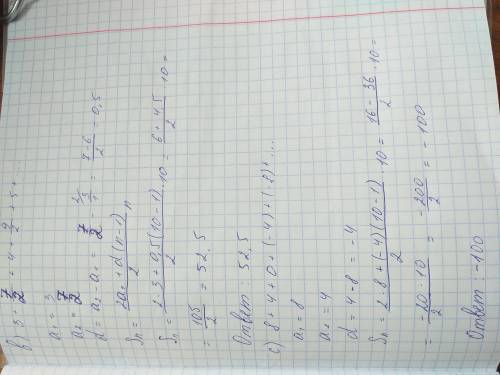 b) 3 + 7/2 + 4 + 9/2 + 5 + ...
a₁ = 3
a₂ = 7/2
d = a₂ - a₁ = 7/2 - 3/1 = 7-6/2 = 0,5
Sₙ = 2a₁ + d(n-1)/2 n
Sₙ = 2·3 + 0,5(10-1)/2 · 10 = 6 + 4,5/2 · 10 =
= 105/2 = 52,5
Ответ: 52,5
c) 8 + 4 + 0 + (-4) + (-8) + ...
a₁ = 8
a₂ = 4
d = 4 - 8 = -4
Sₙ = 2·8 + (-4)(10-1)/2 · 10 = 16 - 36/2 · 10 =
= -20·10/2 = -200/2 = -100
Ответ: -100